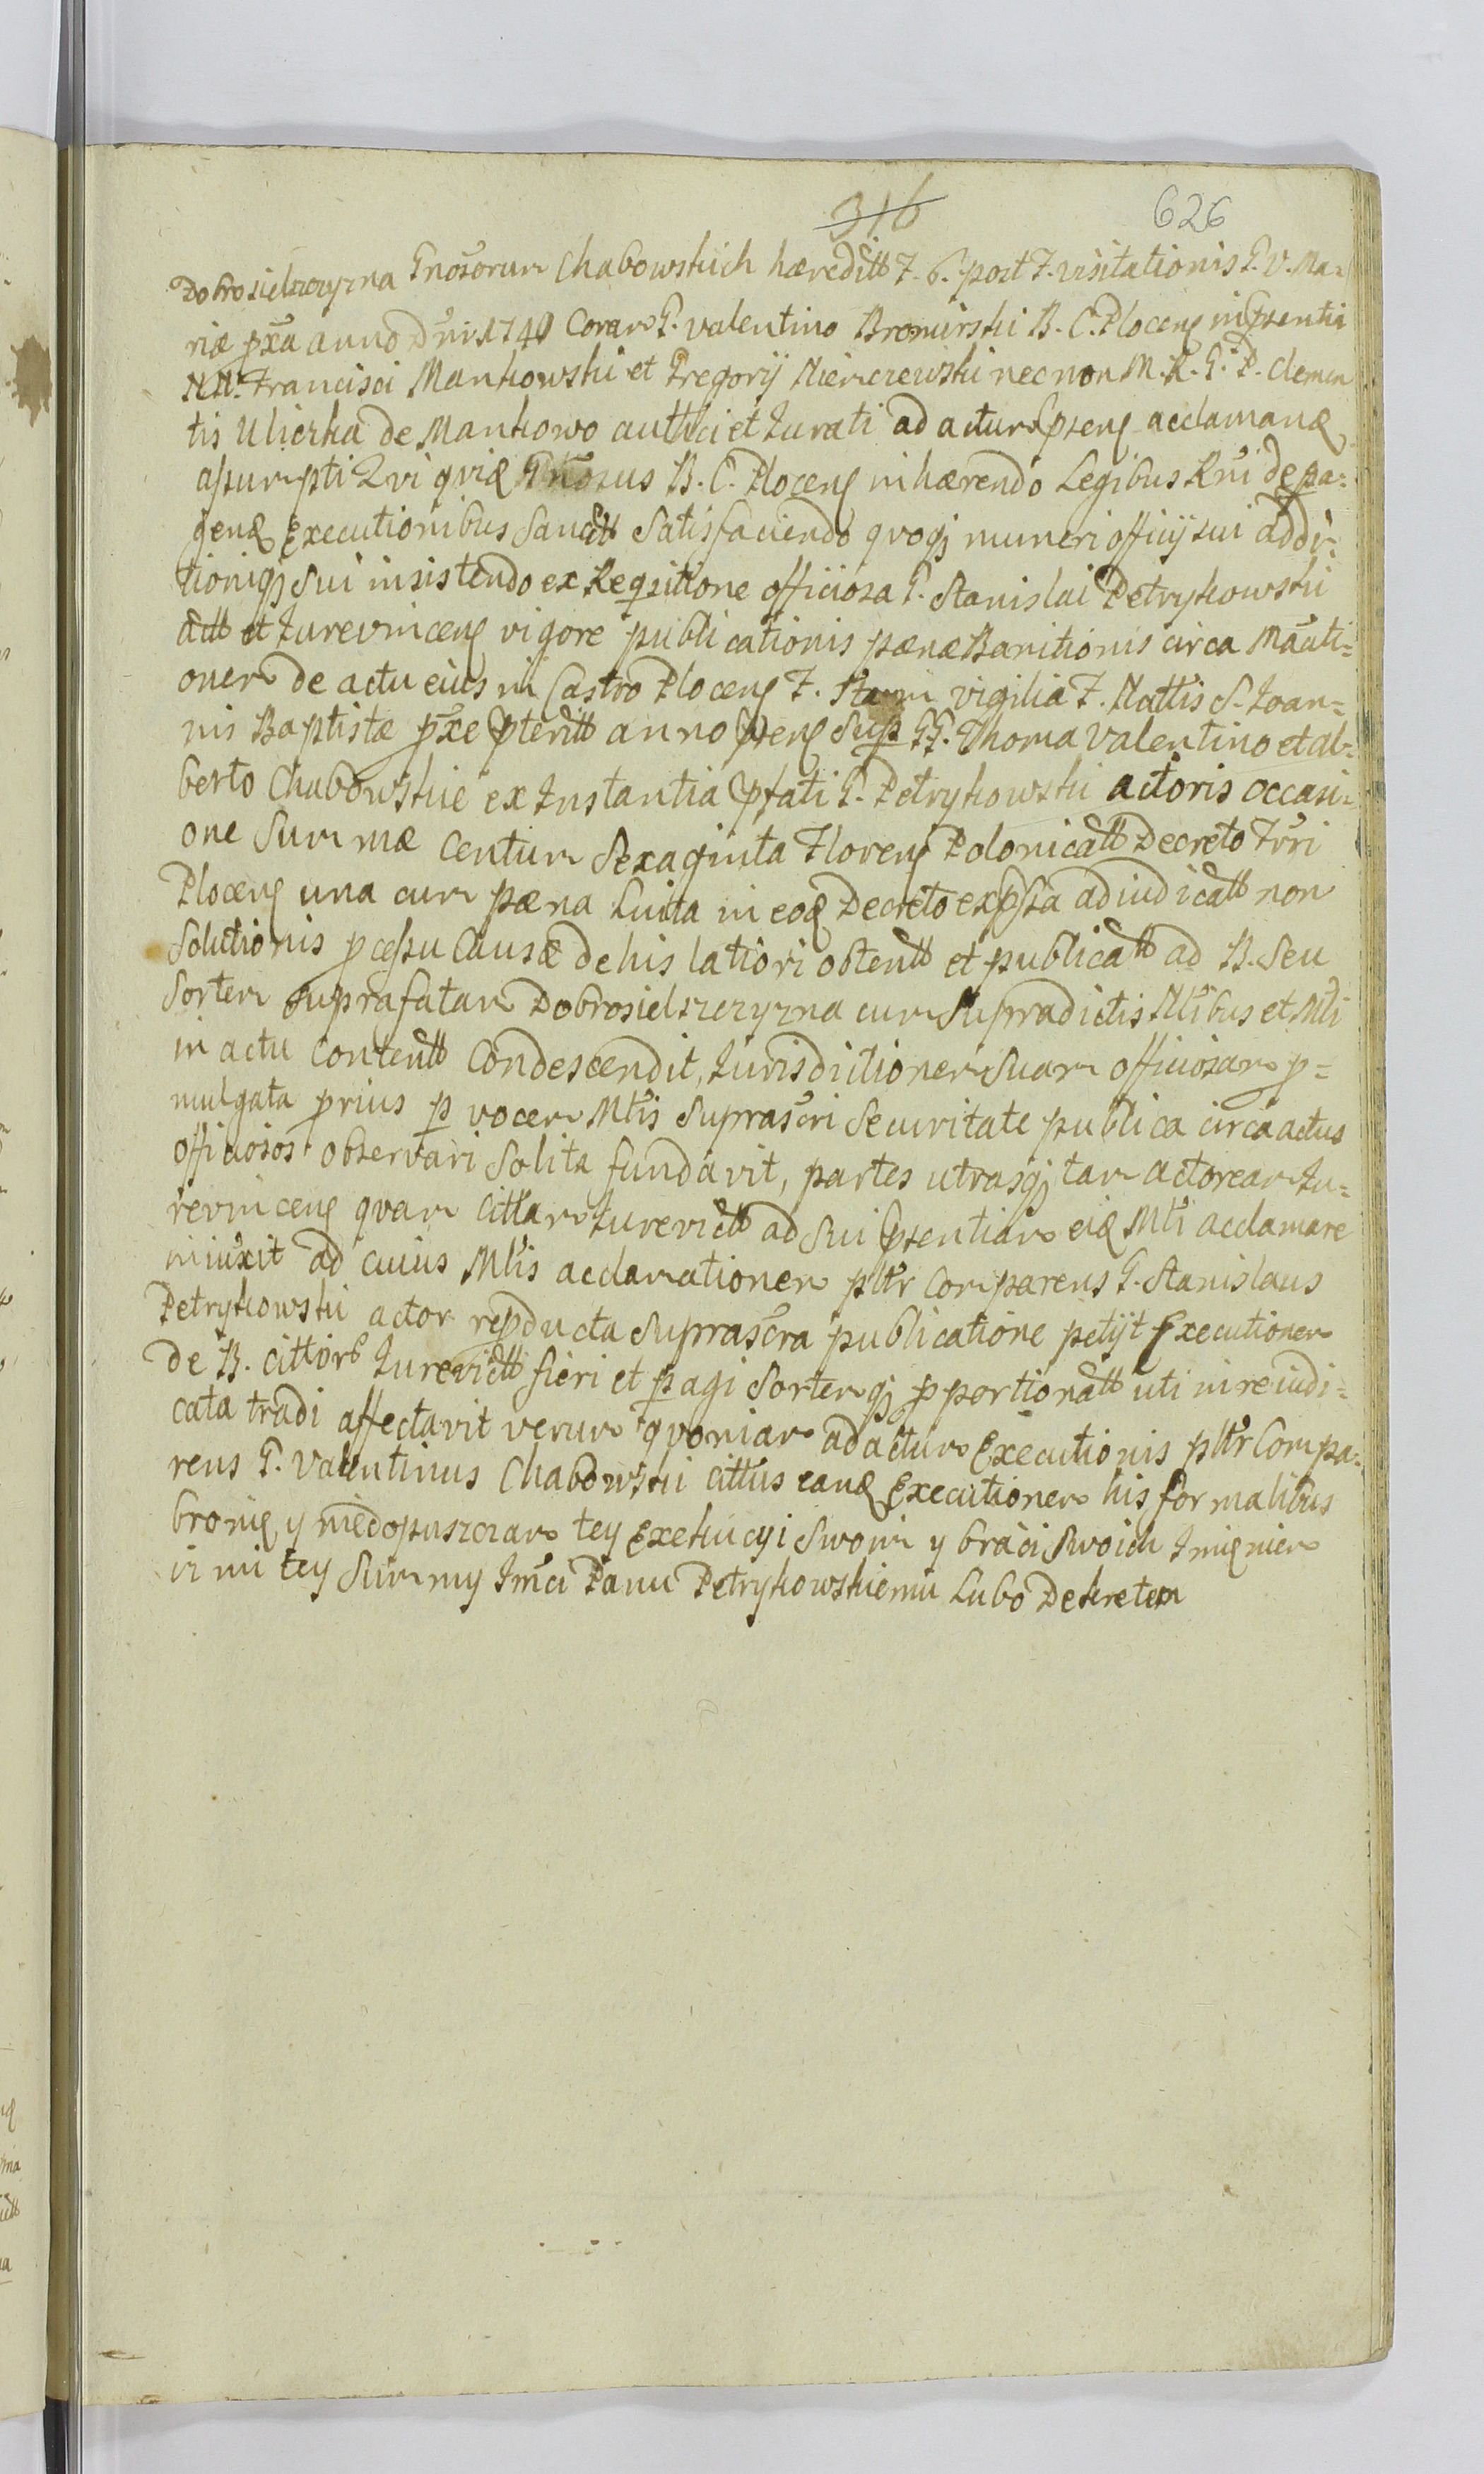 316 626
Dobrosielszczyzna Gnosorum Chabowskich hæreditt F. 6. post F. visitationis B. V. Ma-
riæ pxa anno Dni 1740 Coram G. Valentino Bromirski B. C. Plocen in Psentia
NN. Francisci Mankowski et Gregorij Mierczewski nec non M. R. G. P. Clemen
tis Uliczka de Mankowo authci et Jurati ad actum Psens acclamand
assumpti Qui quid Gnosus B. C. Plocen inhærendo Legibus Rni de pa=
gend Executionibus Sancitt Satisfaciendo quoqj muneri officij sui addi=
tioniqj Sui insistendo ex Reqsitione officiosa G. Stanislai Petrykowski
actt et Jurevincens vigore publicationis pænæ Banitionis circa Mãati=
onem de actu eius in Castro Plocen F. vigilia F. Nattis S. Joan=
nis Baptistæ pxe Pteritt anno Psens Sup GG. Thoma Valentino et Al=
berto Chabowskie ex Instantia Pfati G. Petrykowski actoris occasi=
one Summæ Centum Sexaginta Floren Polonicatt Decreto Trri
Plocen una cum pæna Luita in eod Decreto expssa adiudicatt non
Solutionis pcessu Causæ de his latiori obtentt et publicatt ad B. Seu
Sortem suprafatam Dobrosielszczyzna cum Supradictis Nlibus et Mli
in actu Contentt Condescendit, Jurisdictionem Suam officiosam p=
mulgata prius p vocem Mlis Suprascri Securitate publica circa actus
officiosos observari Solita fundavit, partes utrasqj tam actoream Ju=
revincens quam Cittam Jurevictt ad Sui Psentiam eid Mli acclamare
iniuxit ad cuius Mlis acclamationem pltr Comparens G. Stanislaus
Petrykowski actor repducta Suprascra publicatione petijt Executionem
de B. Cittorb Jurevictt fieri et pagi Sortemqj pportionatt uti in re iudi=
cata tradi affectavit verum quoniam ad actum Executionis pltr Compa=
rens G. Valentinus Chabowski cittus eand Executionem his formalibus
bronię y niedopuszczam tey Exekucyi Swoim y braci Swoich Imieniem
tey Summy Jmci Panu Petrykowskiemu Lubo Dekretem